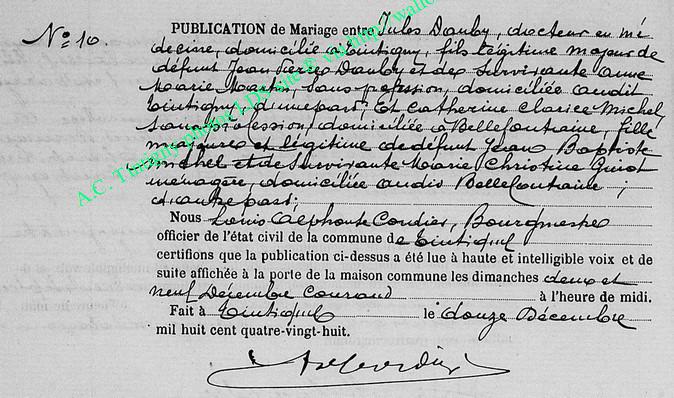 N° 10.
PUBLICATION de Mariage entre Jules Dauby, docteur en mé
decine, domicilié à Tintigny, fils légitime majeur de
défunt Jean Pierre Dauby et de survivante Anne
Marie Martin, sans profession, domiciliée audit
Tintigny, d'une part; Et Catherine Clarice Michel,
sans profession, domiciliée à Bellefontaine, fille
majeure et légitime de défunt Jean Baptiste
Michel et de survivante Marie Christine
ménagère, domiciliée audit Bellefontaine,
d'autre part;
Nous Louis Alphonse Bourgmestre
officier de l'état civil de la commune de Tintigny
certifions que la publication ci-dessus a été lue à haute et intelligible voix et de
suite affichée à la porte de la maison commune les dimanches deux et
neuf Décembre courant à l'heure de midi.
Fait à Tintigny le douze Décembre
mil huit cent quatre-vingt-huit.
A.C. Tintigny photos LDS site